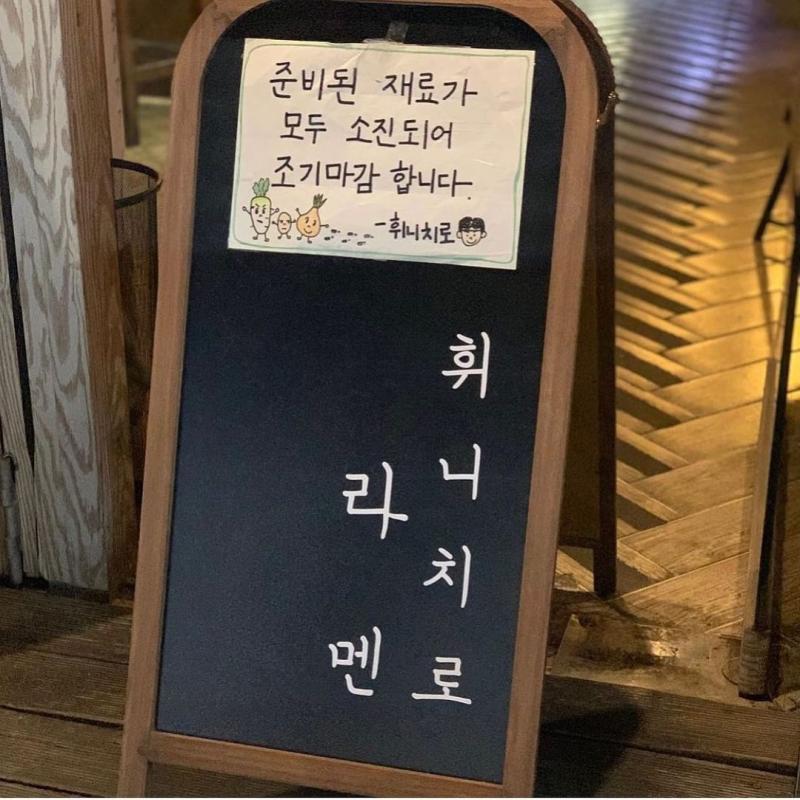 준비된 재료가
모두 소진되어
조기마감 합니다.
-휘니치로
휘니치로
라멘